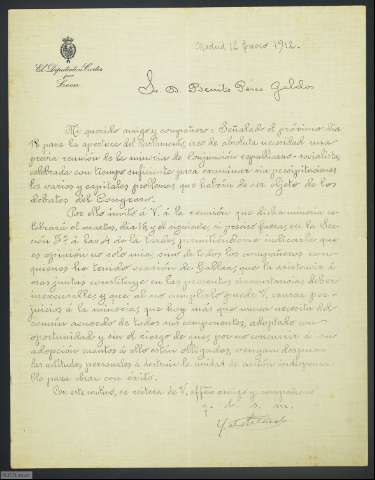 Madrid 12 Enero 1912.
El Diputado á Cortes
por
Sr. D. Benito Pérez Galdós
Mi querido amigo y compañero: Señalado el próximo día
18 para la apertura del Parlamento, creo de absoluta necesidad una
previa reunión de la minoría de Conjunción republicano-socialista,
celebrada con tiempo suficiente para examinar sin precipitaciones
los varios y capitales problemas que habrán de ser objeto de los
debates del Congreso.
Por ello invito á V. á la reunión que dicha minoría ce-
lebrará el martes, día 16, y el siguiente, si preciso fuera, en la Sec-
ción 5ª á las 4 de la tarde, permitiéndome indicarle que
es opinión no solo mia, sino de todos los compañeros con
quienes he tenido ocasión de hablar, que la asistencia á
esas juntas constituye en las presentes circunstancias deber
inexcusable, y que al no cumplirlo puede V. causar per-
juicios á la minoría, que hoy más que nunca necesita del
común acuerdo de todos sus componentes, adoptado con
oportunidad y sin el riesgo de que por no concurrir á su
adopción cuantos á ello están obligados, vengan después
actitudes personales á destruir la unidad de acción indispensa-
ble para obrar con éxito.
Con este motivo, se reitera de V. affmo amigo y compañero
q. b. s. m.